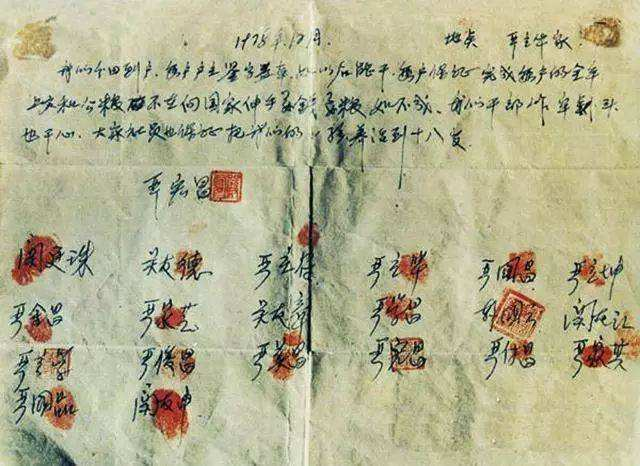 1978年12月. 地点 严立华家
我们分田到户,每户户主签字盖章,如以后能干,每户保证完成每户的全年
上交和公粮,不在向国家伸手要钱要粮,如不成,我们干部作牢杀头
也干心,大家社员也保证把我们的小孩养活到十八岁.
严宏昌
关廷珠 关友德 严立符 严立华 严国昌 严立坤
严金昌 严家芝 关友章 严学昌 韩国云 关友江
严立学 严俊昌 严美昌 严宏昌 严付昌 严家其
严国品 关友申